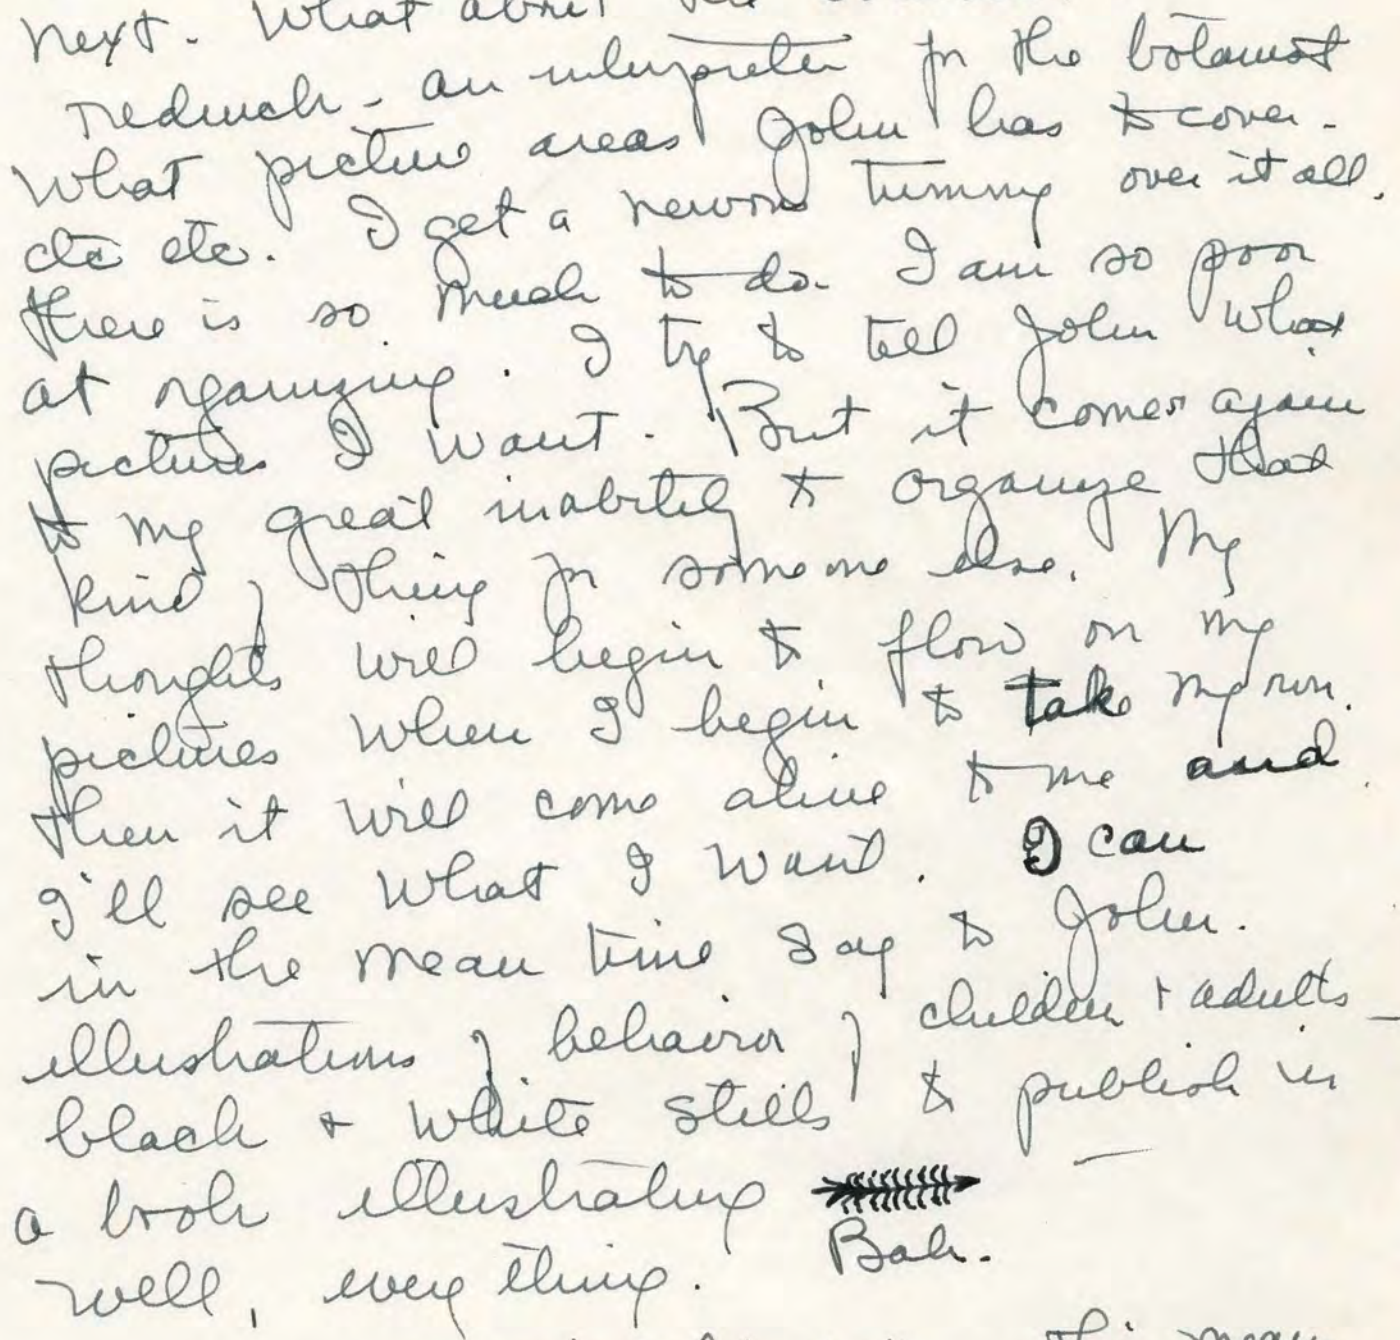 next. What about
- an interpreter for the botanist
What picture areas John has to cover.
etc etc. I get a nervous tummy over it all.
there is so much to do. I am so poor
at organizing. I try to tell John what
pictures I want. But it comes again
to my great inability to organize that
kind of thing for someone else. My
thoughts will begin to flow on my
pictures when I begin to take my own.
then it will come alive to me and
I'll see what I want. I can
in the mean time say to John.
illustrations of behavior of children + adults -
black + white stills to publish in
a book illustrating
Bah.
well, every thing.